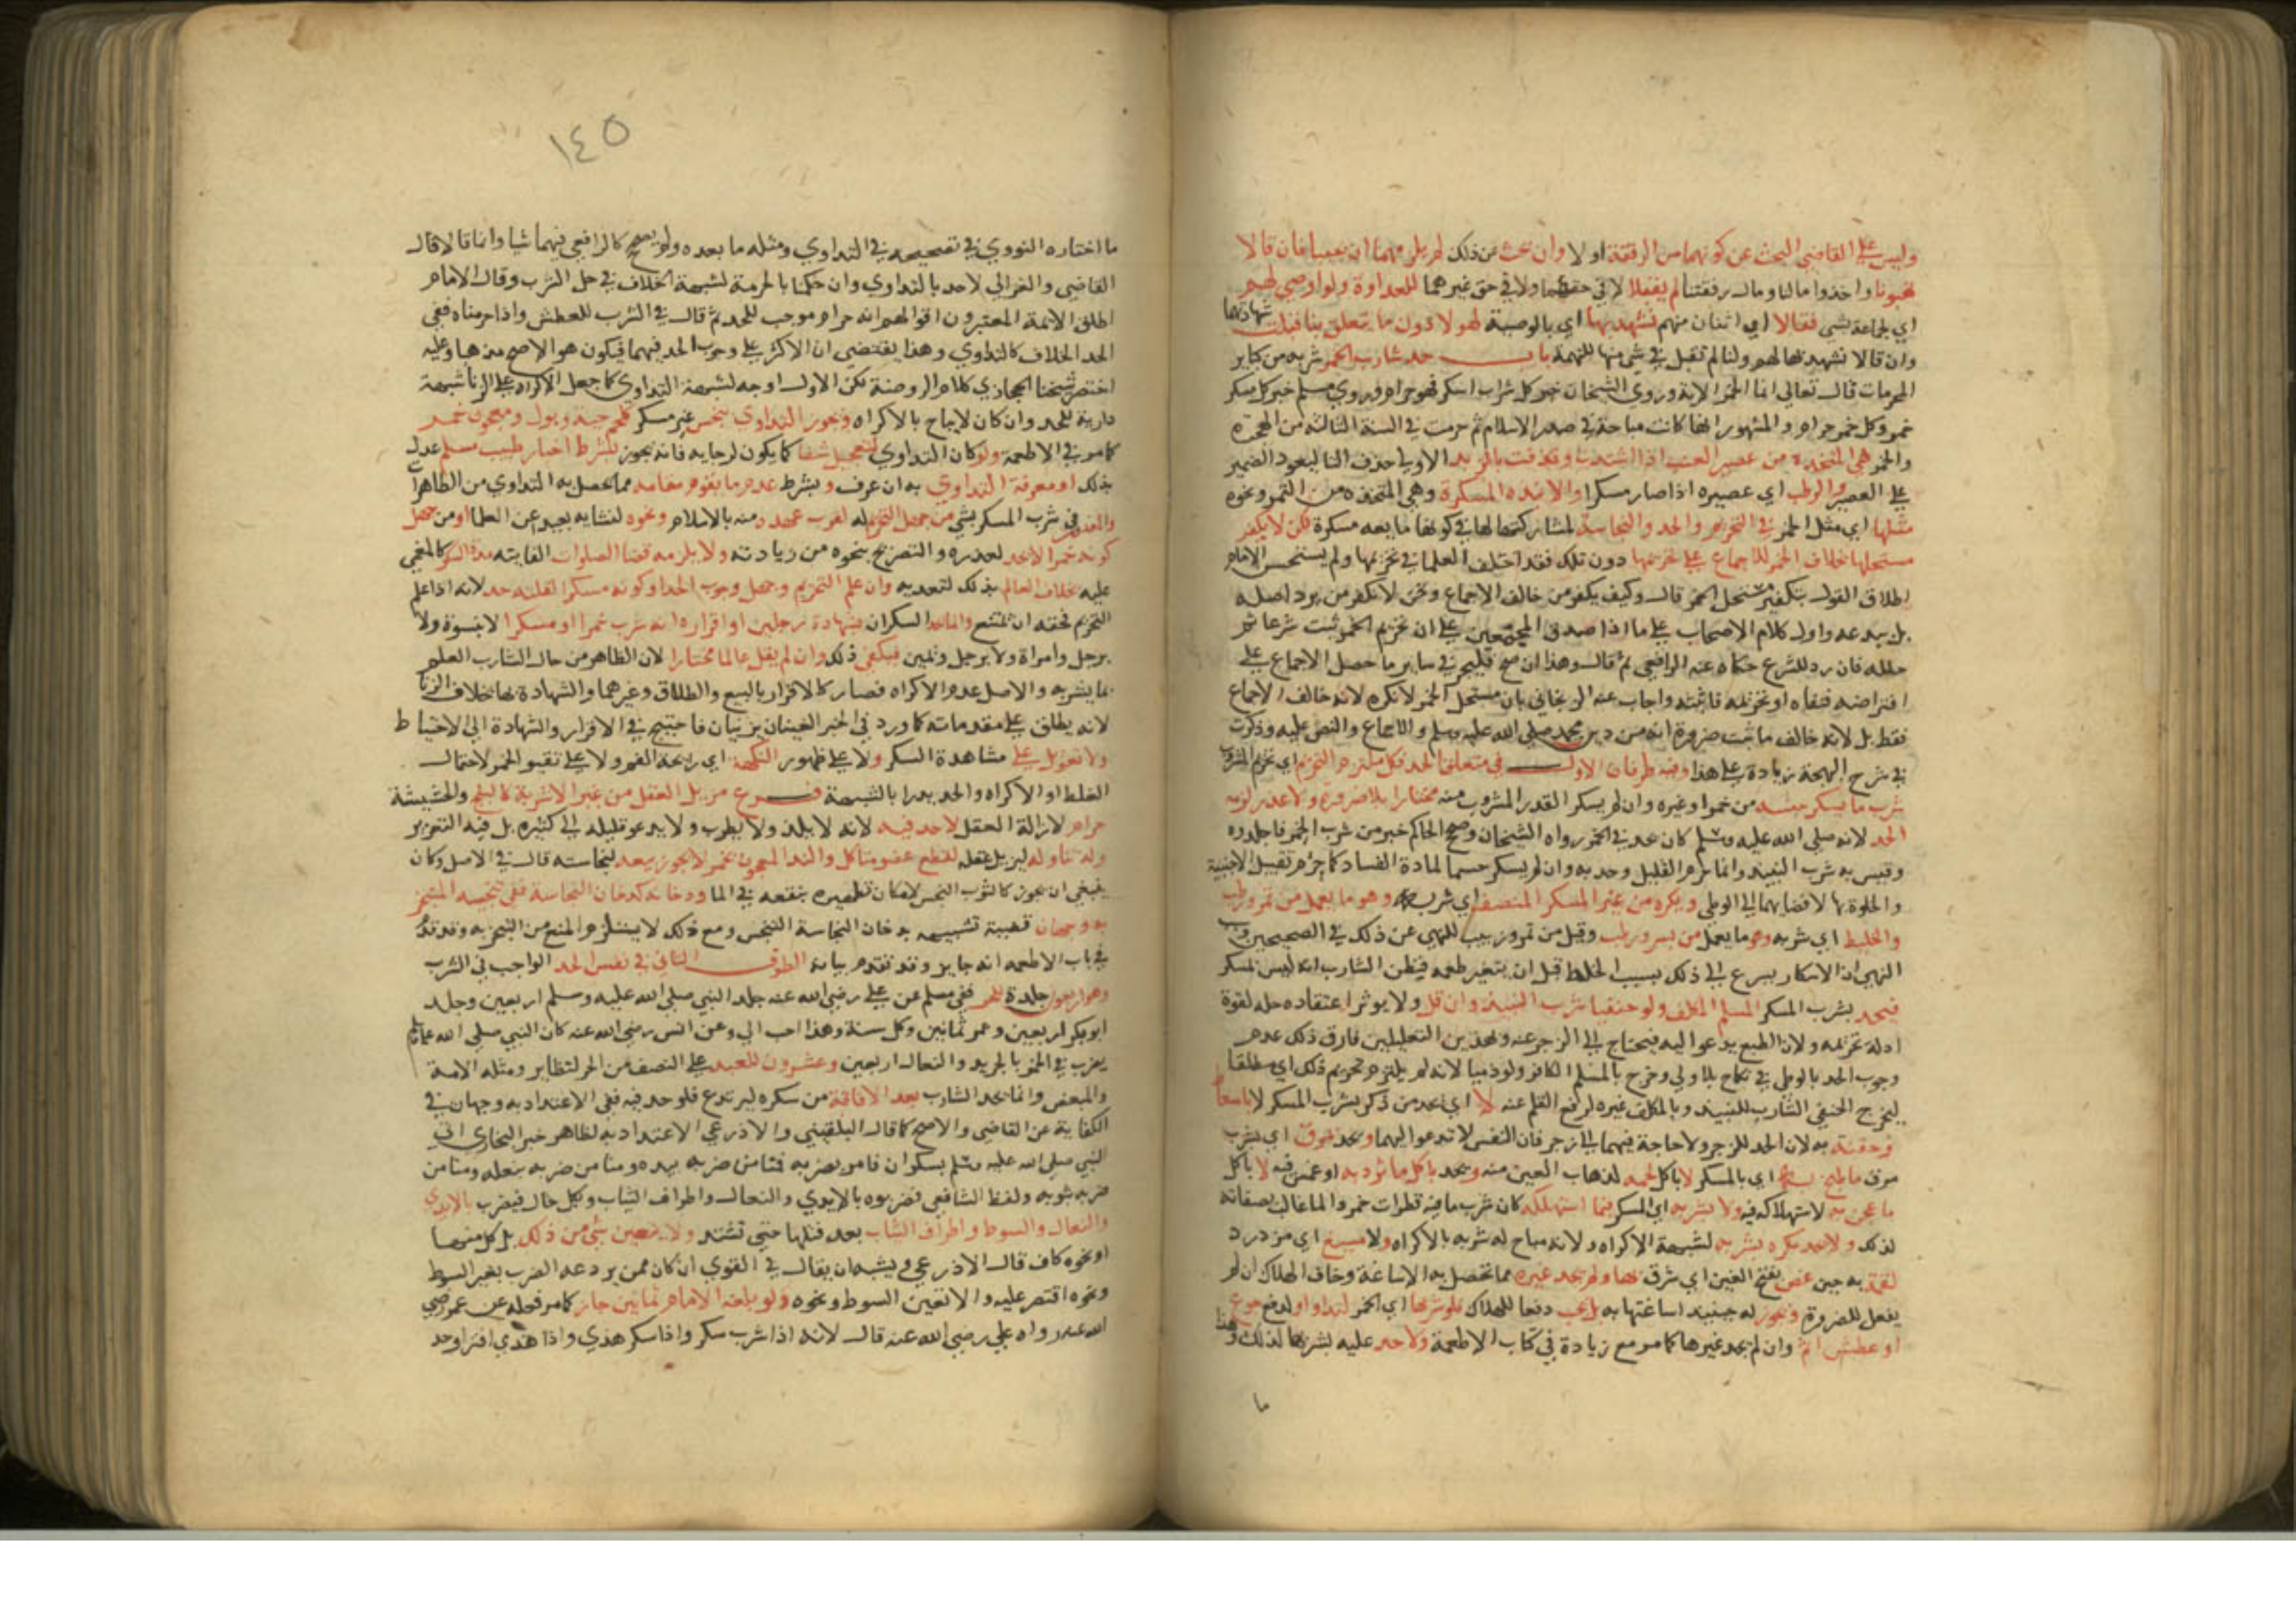 وليس على القاضي البحث عن كونهما من الرفقة او لا وان بحث عن ذلك لم يلزمهما ان يجيبا فان قالا
نهبونا واخذوا مالنا ومال رفقتنا لم يقبلا لا في حقهما ولا في حق غيرهما للعداوة ولو اوصى لهم
اي لجماعة بشي فقالا اي اثنان منهم نشهد بها اي بالوصية لهولا دون ما يتعلق بنا قبلت شهادتهما
وان قالا نشهد بها لهم ولنا لم تقبل في شي منها للتهمة باب حد شارب الخمر شربه من كباير
المحرمات قال تعالى انما الخمر الاية وروى الشيخان خبر كل شراب اسكر فهو حرام وروى مسلم خبر كل مسكر
خمر وكل خمر حرام والمشهور انها كانت مباحة في صدر الاسلام ثم حرمت في السنة الثالثة من الهجرة
والخمر هي المتخذة من عصير العنب اذا اشتد وقذفت بالزبد الاولى حذف التا ليعود الضمير
على العصير والرطب اي عصيره اذا صار مسكرا والانبذه المسكرة وهي المتخذه من التمر ونحوه
مثلها اي مثل الخمر في التحريم والحد والنجاسة لمشاركتها لها في كونها مايعه مسكرة لكن لا يكفر
مستحلها بخلاف الخمر للاجماع على تحريمها دون تلك فقد اختلف العلما في تحريمها ولم يستحسن الامام
اطلاق القول بتكفير مستحل الخمر قال وكيف يكفر من خالف الاجماع ونحن لا نكفر من يرد اصله
بل نبدعه واول كلام الاصحاب على ما اذا صدق المجمعين على ان تحريم الخمر ثبت شرعا ثم
حلله فانه رد للشرع حكاه عنه الرافعي ثم قال وهذا ان صح فليجر في ساير ما حصل الاجماع على
افتراضه فنفاه او تحريمه فاثبته واجاب عنه الزنجاني بان مستحل الخمر لا نكفره لانه خالف الاجماع
فقط بل لانه خالف ما ثبت ضرورة انه من دين محمد صلى الله عليه وسلم والاجماع والنص عليه وذكرت
في شرح البهجة زيادة على هذا وفيه طرفان الاول في متعلق الحد فكل ملتزم التحريم اي تحريم المشروب
شرب ما يسكر جنسه من خمر او غيره وان لم يسكر القدر المشروب منه مختارا بلا ضرورة ولا عذر لزمه
الحد لانه صلى الله عليه وسلم كان يحد في الخمر رواه الشيخان وصحح الحاكم خبر من شرب الخمر فاجلدوه
وقيس به شرب النبيذ وانما حرم القليل وحد به وان لم يسكر حسما لمادة الفساد كما حرم تقبيل الاجنبية
والخلوة بها لافضايهما الى الوطي ويكره من غير المسكر المنصف اي شربه وهو ما يعمل من تمر ورطب
والخليط اي شربه وهو ما يعمل من بسر ورطب وقيل من تمر وزبيب للنهي عن ذلك في الصحيحين وسبب
النهي ان الاسكار يسرع الى ذلك بسبب الخلط قبل ان يتغير طعمه فيظن الشارب انه ليس بمسكر
فيحد بشرب المسكر المسلم المكلف ولو حنفيا شرب النبيذ وان قل ولا يوثر اعتقاده حله لقوة
ادلة تحريمه ولان الطبع يدعو اليه فيحتاج الى الزجر عنه وبهذين التعليلين فارق ذلك عدم
وجوب الحد بالوطي في نكاح بلا ولي وخرج بالمسلم الكافر ولو ذميا لانه لم يلتزم تحريم ذلك اي مطلقا
ليخرج الحنفي الشارب للنبيذ وبالمكلف غيره لرفع القلم عنه لا اي يحد من ذكر بشرب المسكر لا باسعاط
وحقنة به لان الحد للزجر ولا حاجة فيهما الى زجر فان النفس لا تدعو اليهما ويحد بمرق اي بشرب
مرق ما طبخ به اي بالمسكر لا باكل لحمه لذهاب العين منه ويحد باكل ما ثرد به او غمس فيه لا باكل
ما عجن به لاستهلاكه فيه ولا بشربه اي المسكر فيما استهلكه كان شرب ما فيه قطرات خمر والما غالب بصفاته
لذلك ولا يحد مكره بشربه لشبهة الاكراه ولانه مباح له شربه بالاكراه ولا مسيغ اي مزدرد
لقمة به حين غص بفتح الغين اي شرق بها ولم يجد غيره مما تحصل به الاساغة وخاف الهلاك ان لم
يفعل للضرورة ويجوز له حينيذ اساغتها به بل يجب دفعا للهلاك فلو شربها اي الخمر لتداو او لدفع جوع
او عطش اثم وان لم يجد غيرها كما مر مع زيادة في كتاب الاطعمة ولا حد عليه بشربها لذلك وهذا
ما
١٤٥
ما اختاره النووي في تصحيحه في التداوي ومثله ما بعده ولم يصحح كالرافعي فيهما شيا وانما قالا قال
القاضي والغزالي لا حد بالتداوي وان حكمنا بالحرمة لشبهة الخلاف في حل الشرب وقال الامام
اطلق الايمة المعتبرون اقوالهم انه حرام موجب للحد ثم قال في الشرب للعطش واذا حرمناه ففي
الحد الخلاف كالتداوي وهذا يقتضي ان الاكثر على وجوب الحد فيهما فيكون هو الاصح مذهبا وعليه
اختصر شيخنا الحجازي كلام الروضة لكن الاول اوجه لشبهة التداوي كما جعل الاكراه على الزنا شبهة
دارية للحد وان كان لا يباح بالاكراه ويجوز التداوي بنجس غير مسكر كلحم حية وبول ومعجون خمر
كما مر في الاطعمة ولو كان التداوي لتعجيل شفا كما يكون لرجايه فانه يجوز بشرط اخبار طبيب مسلم عدل
بذلك او معرفة التداوي به ان عرف وبشرط عدم ما يقوم مقامه مما يحصل به التداوي من الطاهرات
والمعذور في شرب المسكر بشي من جهل التحريم له لقرب عهده منه بالاسلام ونحوه لنشايه بعيد عن العلما او من جهل
كونه خمرا لا يحد لعذره والتصريح بنحوه من زيادته ولا يلزمه قضا الصلوات الفايته مدة السكر كالمغمى
عليه بخلاف العالم بذلك لتعديه وان علم التحريم وجهل وجوب الحد او كونه مسكرا لقلته حد لانه اذا علم
التحريم فحقه ان يمتنع وانما يحد السكران بشهادة رجلين او اقراره انه شرب خمرا او مسكرا لا بنسوة ولا
برجل وامراة ولا برجل ويمين فيكفي ذلك وان لم يقل عالما مختارا لان الظاهر من حال الشارب العلم
بما يشربه والاصل عدم الاكراه فصار كالاقرار بالبيع والطلاق وغيرهما والشهادة بها بخلاف الزنا
لانه يطلق على مقدماته كما ورد في الخبر العينان يزنيان فاحتيج في الاقرار والشهادة الى الاحتياط
ولا تعويل على مشاهدة السكر ولا على ظهور النكهة اي رايحة الفم ولا على تقيو الخمر لاحتمال
الغلط او الاكراه والحد يدرا بالشبهة فرع مزيل العقل من غير الاشربة كالبنج والحشيشة
حرام لازالة العقل لا حد فيه لانه لا يلذ ولا يطرب ولا يدعو قليله الى كثيره بل فيه التعزير
وله تناوله ليزيل عقله لقطع عضو متاكل والند المعجون بخمر لا يجوز بيعه لنجاسته قال في الاصل وكان
ينبغي ان يجوز كالثوب النجس لامكان تطهيره بنقعه في الما ودخانه كدخان النجاسة ففي تنجيسه المتبخر
به وجهان قضية تشبيهه بدخان النجاسة التنجس ومع ذلك لا يستلزم المنع من التبخر به وقد قدم
في باب الاطعمه انه جايز وقد تقدم بيانه الطرف الثاني في نفس الحد الواجب في الشرب
وهو اربعون جلدة للحر ففي مسلم عن علي رضي الله عنه جلد النبي صلى الله عليه وسلم اربعين وجلد
ابو بكر اربعين وعمر ثمانين وكل سنة وهذا احب الي وعن انس رضي الله عنه كان النبي صلى الله عليه وسلم
يضرب في الخمر بالجريد والنعال اربعين وعشرون للعبد على النصف من الحر لنظايره ومثله الامة
والمبعض وانما يحد الشارب بعد الافاقة من سكره ليرتدع فلو حد فيه ففي الاعتداد به وجهان في
الكفاية عن القاضي والاصح كما قال البلقيني والاذرعي الاعتداد به لظاهر خبر البخاري اتي
النبي صلى الله عليه وسلم بسكران فامر بضربه فمنا من ضربه بيده ومنا من ضربه بنعله ومنا من
ضربه بثوبه ولفظ الشافعي فضربوه بالايدي والنعال واطراف الثياب وبكل حال فيضرب بالايدي
والنعال والسوط واطراف الثياب بعد فتلها حتى تشتد ولا يتعين شي من ذلك بل كل منهما
او نحوه كاف قال الاذرعي ويشبه ان يقال في القوي ان كان ممن يردعه الضرب بغير السوط
ونحوه اقتصر عليه والا تعين السوط ونحوه ولو بلغه الامام ثمانين جاز كما مر فعله عن عمر رضي
الله عنه رواه علي رضي الله عنه قال لانه اذا شرب سكر واذا سكر هذي واذا هذي افترا وحد